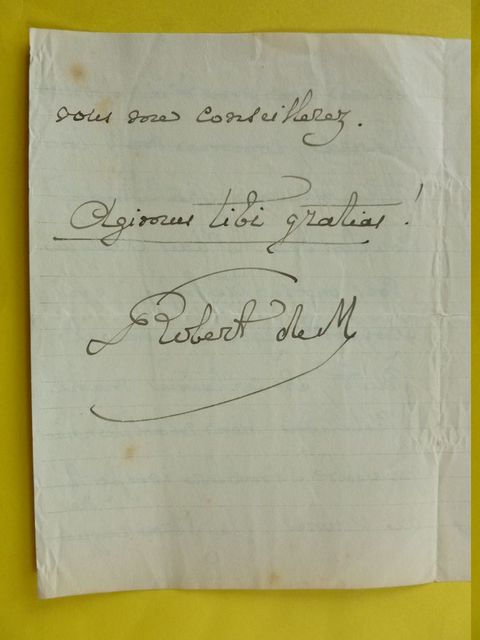 vous me conseillerez.
Agimus tibi gratias !
Robert de M